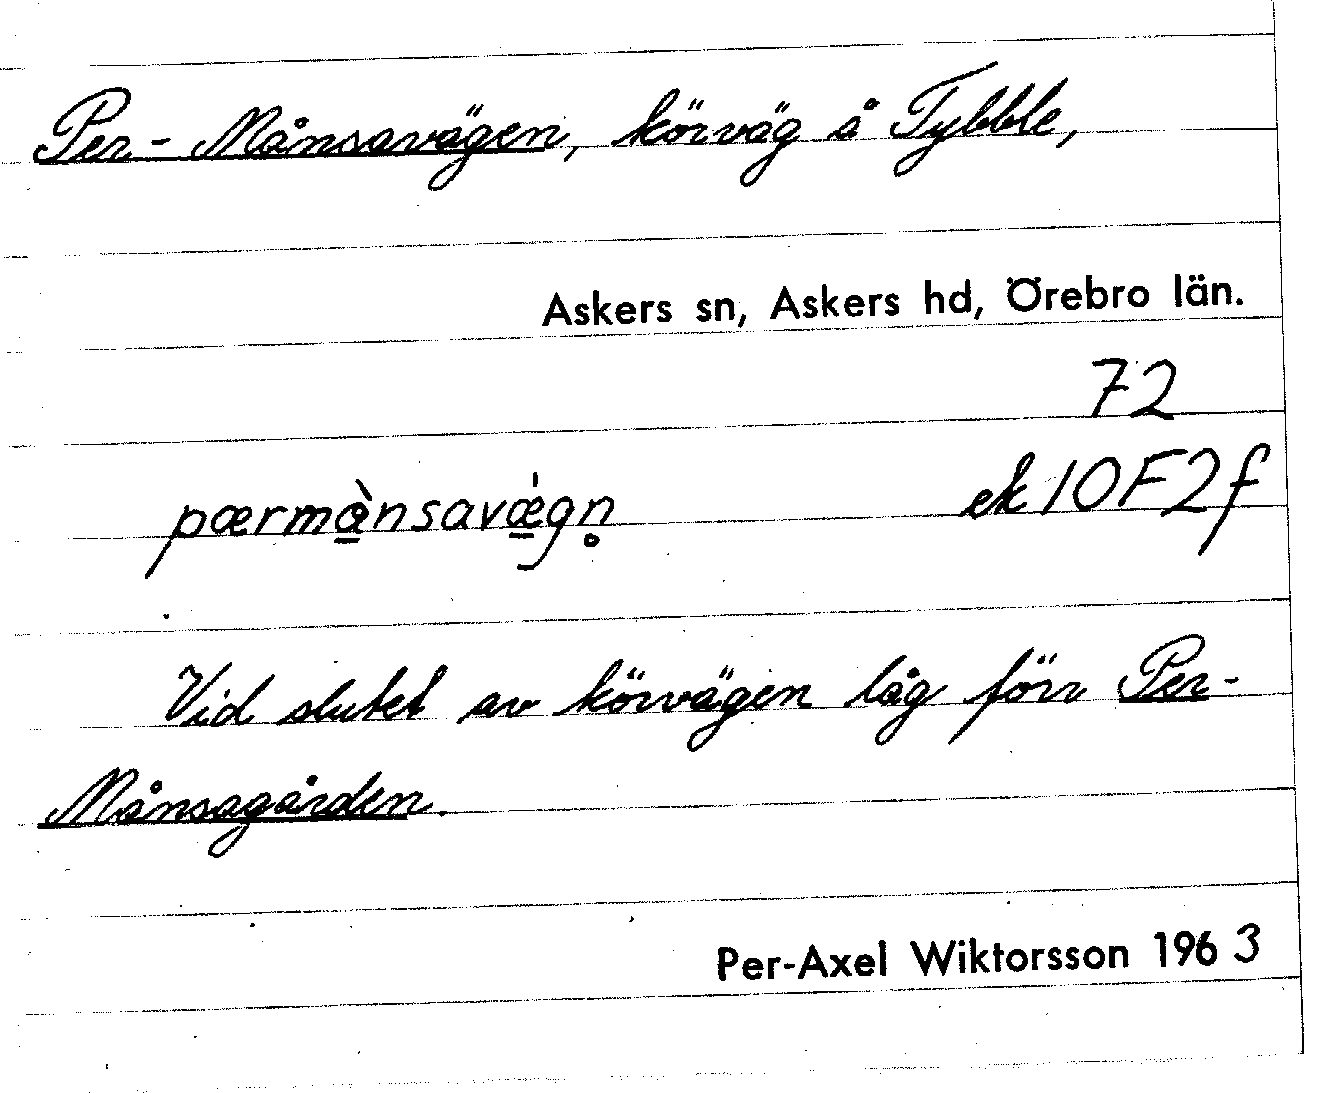 Per-Månsavägen, körväg å Tybble,
Askers sn, Askers hd, Örebro län.
72
pærmànsavǽgn̥ ek 10F2f
Vid slutet av körvägen låg förr Per-
Månsagården.
Per-Axel Wiktorsson 1963